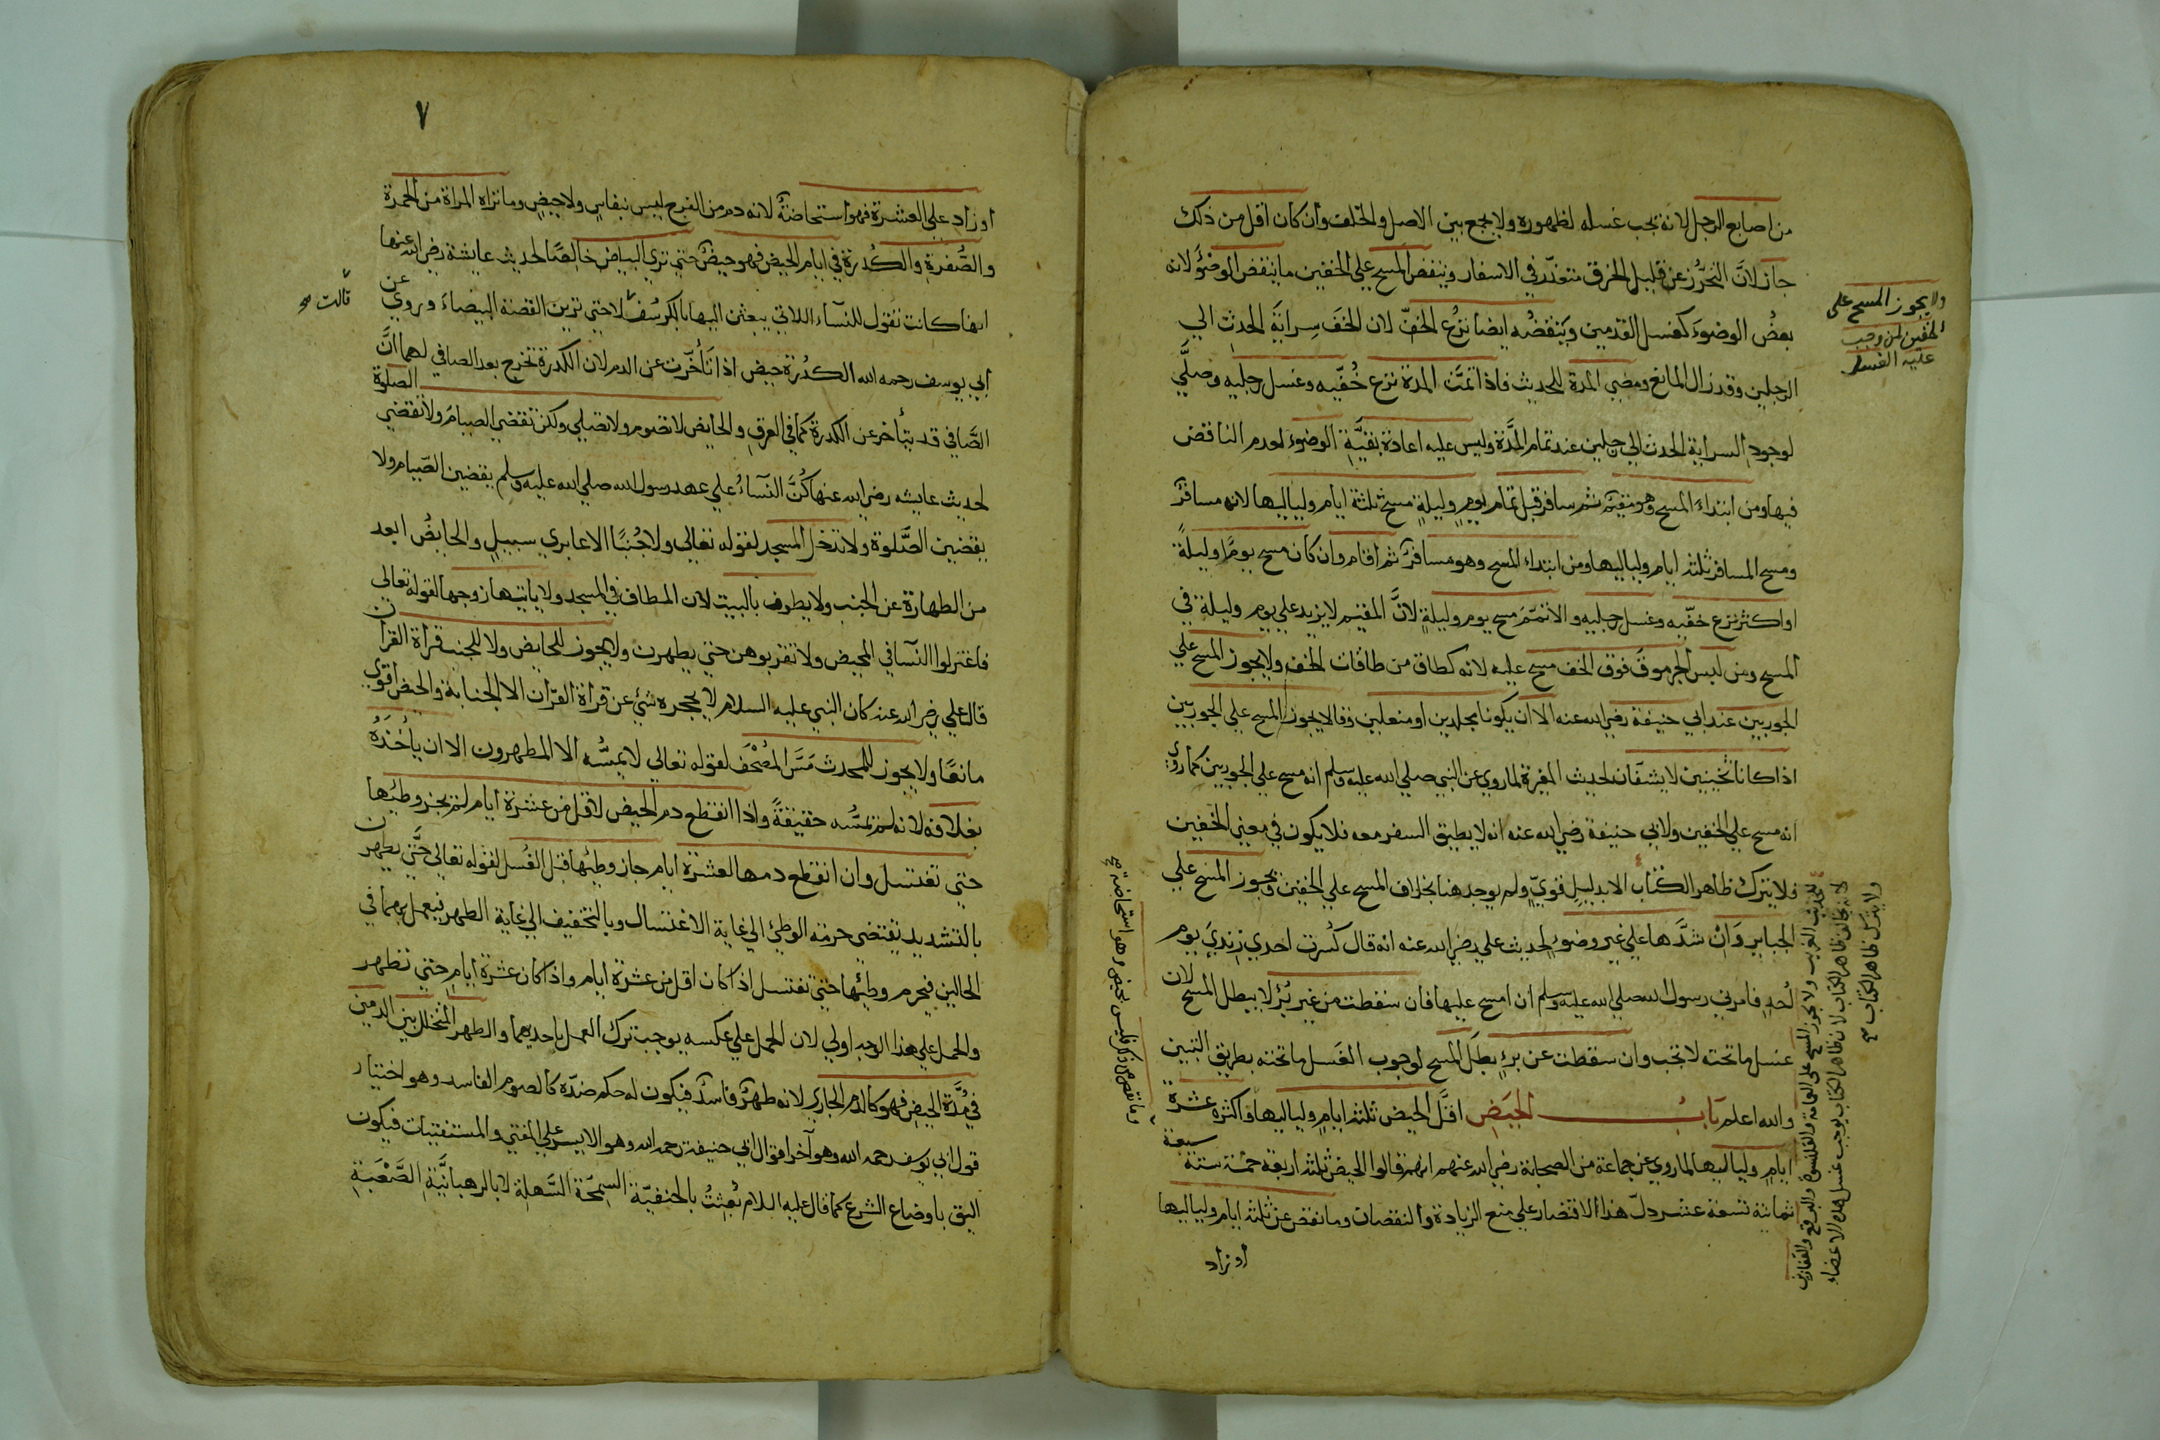 من اصابع الرجل لانه يجب غسله لظهوره ولا يجمع بين الاصل والخلف وان كان اقل من ذلك
جاز لانَّ التحرُّز عن قليل الخرق متعذر في الاسفار وينقض المسح على الخفين ما ينقض الوضوَ لانه
بعضُ الوضوءَ كغسل القدمين وينقضُه ايضا نزعُ الخفّ لان الخفَ سِرايةَ الحدث الي
الرجلين وقد زال المانع ومضي المدة للحديث فاذا تمَّت المدة نزع خُفّيه وغسل رجليه وصلَّي
لوجودِ السراية الحدث الي رجلين عند تمام المدَّة وليس عليه اعادة بقيَّةِ الوضوءِ لعدم الناقض
فيها ومن ابتداءَ المسح وهو مقيم ثم سافر قبل تمام يومٍ وليلةٍ مسح ثلثة ايام ولياليها لانه مسافرٌ
ومسح المسافر ثلثة ايام ولياليها ومن ابتداء المسح وهو مسافرٌ ثم اقام وان كان مسح يومًا وليلةً
او اكثر نزع خفّيه وغسل رجليه والا تمّمَ مسح يوم وليلةٍ لانَّ المقيم لا يزيد علي يوم وليلة في
المسح ومن لبس الجرموقَ فوق الخف مسح عليه لانه كطاق من طاقات الخف ولا يجوز المسح علي
الجوربين عند ابي حنيفة رضي الله عنه الا ان يكونا مجلدين او منعلين وقالا يجوز المسح علي الجوربين
اذا كانا ثخينين لا يشفّان لحديث المغيرة لما روي عن النبي صلي الله عليه وسلم انه مسح علي الجوربين كما روي
انه مسح علي الخفين ولابي حنيفة رضي الله عنه انه لا يطيق السفر معه فلا يكون في معني الخفين
فلا يترك ظاهر الكتاب الا بدليلٍ قويٍّ ولم يوجد هنا بخلاف المسح علي الخفين ويجوز المسح علي
الجباير وَانْ شدَّها علي غير وضوءٍ لحديث علي رضي الله عنه انه قال كُسِرت احدي زندي يوم
اُحُدٍ فامرني رسول الله صلي الله عليه وسلم ان امسح عليها فان سقطت من غير بُرْءٍ لا يبطل المسح لان
غسل ما تحته لا تجب وان سقطت عن برءٍ بطل المسح لوجوب الغَسل ما تحته بطريق التبين
والله اعلم بَابُ الحيَضِ اقلُّ الحيض ثلثة ايامٍ ولياليها واكثره عشرة
ايامٍ ولياليها لما روي عن جماعة من الصحابة رضي الله عنهم انهم قالوا الحيض ثلثة اربعة خمسة ستة سبعة
ثمانية تسعة عشر دلّ هذا الاقتصار علي منع الزيادة والنقصان وما نقص عن ثلثة ايام ولياليها
او زاد
ولا يجوز المسح على
الخفين لمن وجب
عليه الغسل
ولا يجوز المسح على العمامة والقلنسوة والبرقع والقفازين
لانه يخالف ظاهر الكتاب لان ظاهر الكتاب يوجب غسل هذه الاعضاء
ولا يترك ظاهر الكتاب
وما نقص من ذلك فليس بحيض وهو استحاضة
٧
او زاد علي العشرة فهو استحاضةٌ لانه دم من الفرج ليس نفاسٍ ولا حيضٍ وما تراه المراة من الحمرة
والصُّفرةِ والكُدرة في ايام الحيض فهو حيضٌ حتي تري البياض خالصًا لحديث عايشة رضي الله عنها
انها كانت تقول للنسآء اللاتي يبعثن اليها بالكرسُف لا حتي ترين القصة البيضاءَ وروي عن
قالت
ابي يوسف رحمه الله الكُدْرة حيض اذا تأخّرت عن الدم لان الكدرة تخرج بعد الصافي لهما انَّ
الصَّافي قد يتأخر عن الكدرة كما في العرفِ والحايض لا تصوم ولا تصلي ولكن تقضي الصيامَ ولا تقضي الصلوة
لحديث عايشه رضي الله عنها كُنَّ النسآءُ علي عهد رسول الله صلي الله عليه وسلم يقضين الصّيام ولا
يقضين الصَّلوة ولا تدخل المسجد لقوله تعالي ولا جُنبًا الا عابري سبيل والحايضُ ابعد
من الطهارة عن الجنب ولا يطوف بالبيت لان المطاف في المسجد ولا ياتيها زوجها لقوله تعالي
فاعتزلوا النسآ في المحيض ولا تقربوهن حتي يطهرن ولا يجوز للحايض ولا للجنب قراة القران
قال علي رضي الله عنه كان النبي عليه السلام لا يحجره شئ عن قراة القرآن الا الجنابة والحيض اقوي
مانعًا ولا يجوز للمحدث مَسَّ المُصْحَفِ لقوله تعالي لا يمسُّه الا المطهرون الا ان ياْخُذَهُ
بغلافه لانه لم يمسُّه حقيقةً واذا انقطع دم الحيض لاقل من عشرة ايام لم يجز وطئها
حتي تغتسل وان انقطع دمها لعشرة ايام جاز وطئها قبل الغُسل لقوله تعالي حتَّي يطهرن
بالتشديد تقتضي حرمة الوطئ الي غاية الاغتسال وبالتخفيف الي غاية الطهر فيعمل بهما في
الحالين فيحرم وطئها حتي تغتسل اذا كان اقل من عشرة ايام واذا كان عشرة ايامٍ حتي تطهر
والحمل علي هذا الوجه اولي لان الحمل علي عكسه يوجب ترك العمل باحديهما والطهر المتخلل بين الدمين
في مُدَّة الحيضِ فهو كالدم الجاري لانه طهرٌ فاسدٌ فيكون له حكم ضدّه كالصوم الفاسد وهو اختيار
قول ابي يوسف رحمه الله وهو آخر اقوال ابي حنيفة رحمه الله وهو الايسر علي المفتي والمستفتيات فيكون
اليق باوضاع الشرع كما قال عليه السلام بُعِثتُ بالحنفيّة السمحّة السَّهلة لا بالرهبانيَّةِ الصَّعْبَةِ